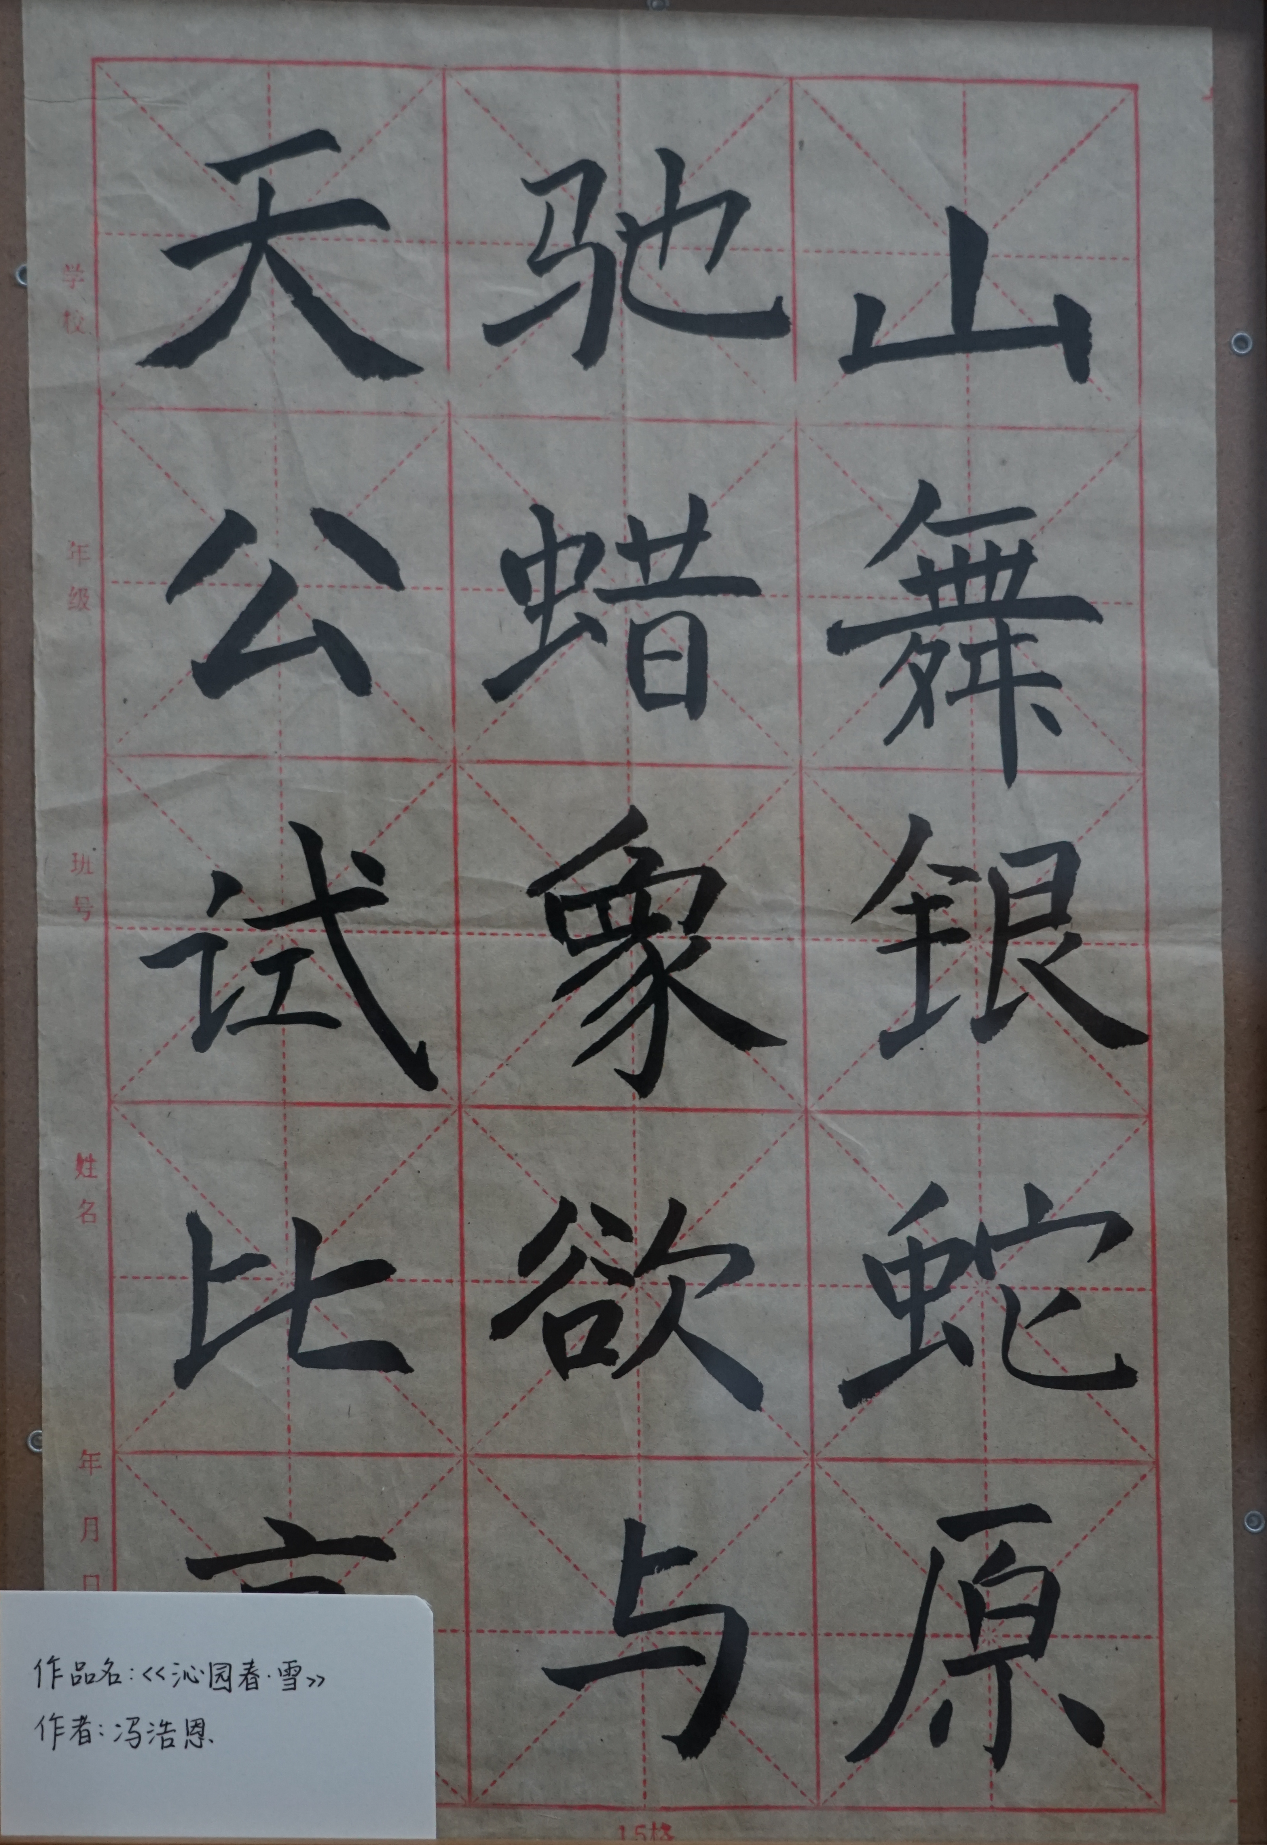 山舞银蛇原
驰蜡象欲与
天公试比
学校
年级
班号
姓名
年月日
作品名:<<沁园春·雪>>
作者:冯浩恩
15格